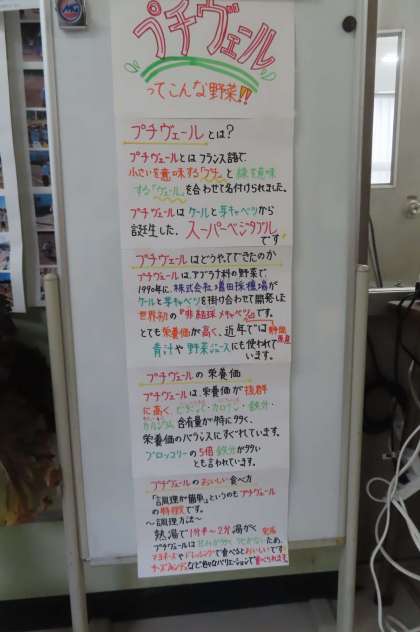 プチヴェール
ってこんな野菜!!
プチヴェールとは?
プチヴェールとはフランス語で、
小さいを意味する「プチ」と緑を意味
する「ヴェール」を合わせて名付けられました。
プチヴェールはケールと芽キャベツから
誕生した、スーパーベジタブル
です
プチヴェールはどうやってできたのか
プチヴェールは、アブラナ科の野菜で、
1990年に、株式会社増田採種場が
ケールと芽キャベツを掛け合わせて開発した
世界初の『非結球メキャベツ』です。
とても栄養価が高く、近年では静岡県産
青汁や野菜ジュースにも使われて
います。
プチヴェールの栄養価
プチヴェールは、栄養価が抜群
に高く、カロテン・鉄分・
カルシウム含有量が特に多く、
栄養価のバランスにすぐれています。
ブロッコリーの5倍鉄分が多い
とも言われています。
プチヴェールのおいしい食べ方
「調理が簡単」というのもプチヴェール
の特徴です。
〜調理方法〜
熱湯で1分半〜2分湯がく 完成
プチヴェールは甘みが多く、ため、
マヨネーズやドレッシングで食べるとおいしいです
チーズフォンデュなど色々なバリエーションで食べられます